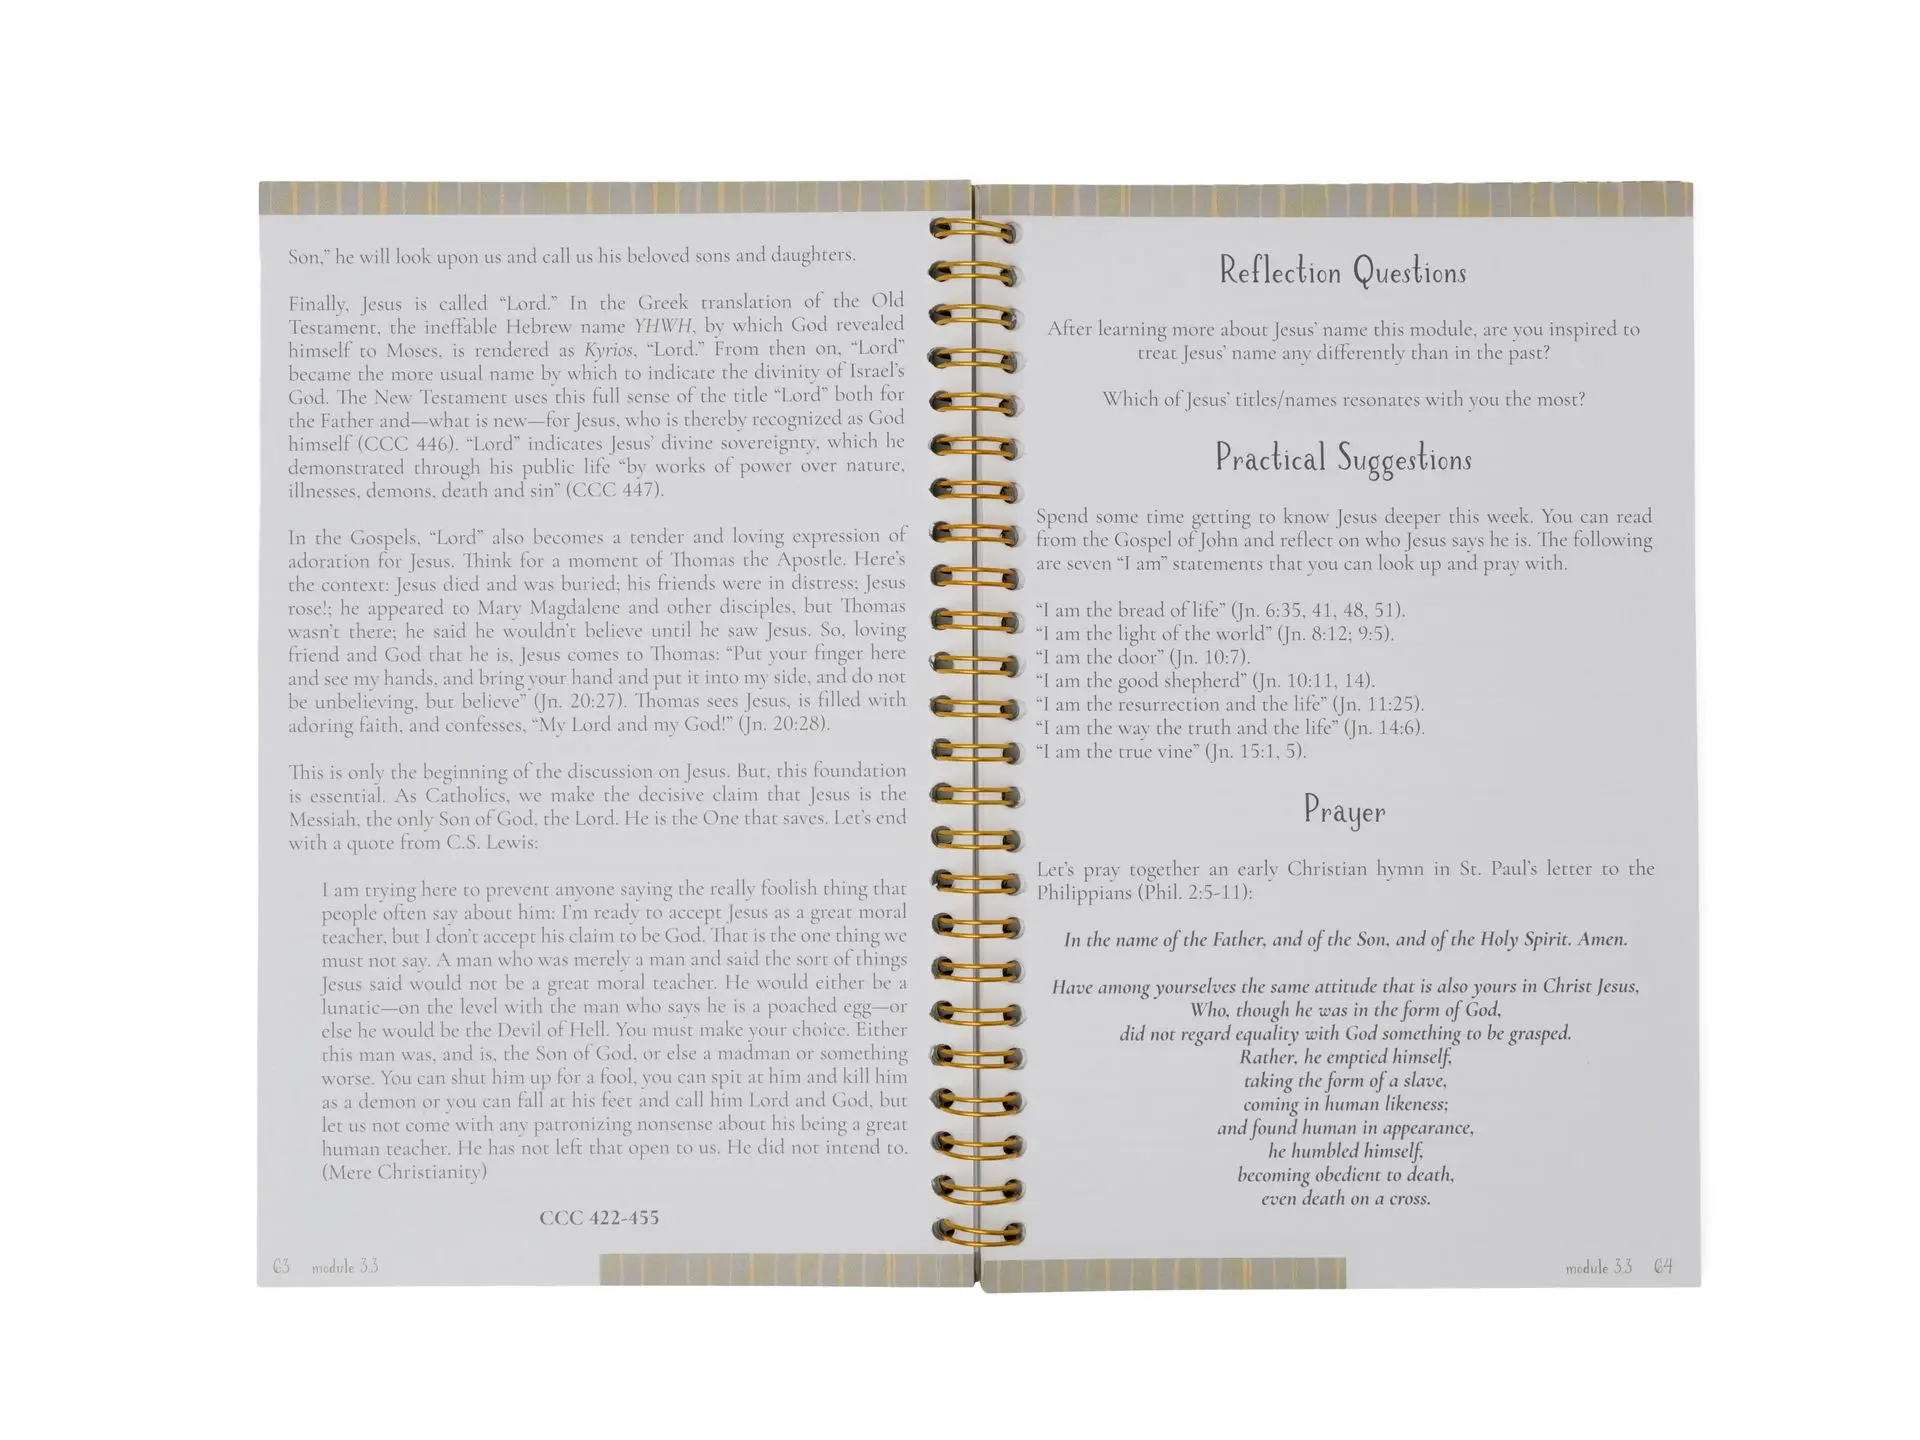 Son,” he will look upon us and call us his beloved sons and daughters.
Finally, Jesus is called “Lord.” In the Greek translation of the Old
Testament, the ineffable Hebrew name YHWH, by which God revealed
himself to Moses, is rendered as Kyrios, “Lord.” From then on, “Lord”
became the more usual name by which to indicate the divinity of Israel’s
God. The New Testament uses this full sense of the title “Lord” both for
the Father and—what is new—for Jesus, who is thereby recognized as God
himself (CCC 446). “Lord” indicates Jesus’ divine sovereignty, which he
demonstrated through his public life “by works of power over nature,
illnesses, demons, death and sin” (CCC 447).
In the Gospels, “Lord” also becomes a tender and loving expression of
adoration for Jesus. Think for a moment of Thomas the Apostle. Here’s
the context: Jesus died and was buried; his friends were in distress; Jesus
rose!; he appeared to Mary Magdalene and other disciples, but Thomas
wasn’t there; he said he wouldn’t believe until he saw Jesus. So, loving
friend and God that he is, Jesus comes to Thomas: “Put your finger here
and see my hands, and bring your hand and put it into my side, and do not
be unbelieving, but believe” (Jn. 20:27). Thomas sees Jesus, is filled with
adoring faith, and confesses, “My Lord and my God!” (Jn. 20:28).
This is only the beginning of the discussion on Jesus. But, this foundation
is essential. As Catholics, we make the decisive claim that Jesus is the
Messiah, the only Son of God, the Lord. He is the One that saves. Let’s end
with a quote from C.S. Lewis:
I am trying here to prevent anyone saying the really foolish thing that
people often say about him: I’m ready to accept Jesus as a great moral
teacher, but I don’t accept his claim to be God. That is the one thing we
must not say. A man who was merely a man and said the sort of things
Jesus said would not be a great moral teacher. He would either be a
lunatic—on the level with the man who says he is a poached egg—or
else he would be the Devil of Hell. You must make your choice. Either
this man was, and is, the Son of God, or else a madman or something
worse. You can shut him up for a fool, you can spit at him and kill him
as a demon or you can fall at his feet and call him Lord and God, but
let us not come with any patronizing nonsense about his being a great
human teacher. He has not left that open to us. He did not intend to.
(Mere Christianity)
CCC 422-455
63 module 3.3
Reflection Questions
After learning more about Jesus’ name this module, are you inspired to
treat Jesus’ name any differently than in the past?
Which of Jesus’ titles/names resonates with you the most?
Practical Suggestions
Spend some time getting to know Jesus deeper this week. You can read
from the Gospel of John and reflect on who Jesus says he is. The following
are seven “I am” statements that you can look up and pray with.
“I am the bread of life” (Jn. 6:35, 41, 48, 51).
“I am the light of the world” (Jn. 8:12; 9:5).
“I am the door” (Jn. 10:7).
“I am the good shepherd” (Jn. 10:11, 14).
“I am the resurrection and the life” (Jn. 11:25).
“I am the way the truth and the life” (Jn. 14:6).
“I am the true vine” (Jn. 15:1, 5).
Prayer
Let’s pray together an early Christian hymn in St. Paul’s letter to the
Philippians (Phil. 2:5-11):
In the name of the Father, and of the Son, and of the Holy Spirit. Amen.
Have among yourselves the same attitude that is also yours in Christ Jesus,
Who, though he was in the form of God,
did not regard equality with God something to be grasped.
Rather, he emptied himself,
taking the form of a slave,
coming in human likeness;
and found human in appearance,
he humbled himself,
becoming obedient to death,
even death on a cross.
module 3.3 64